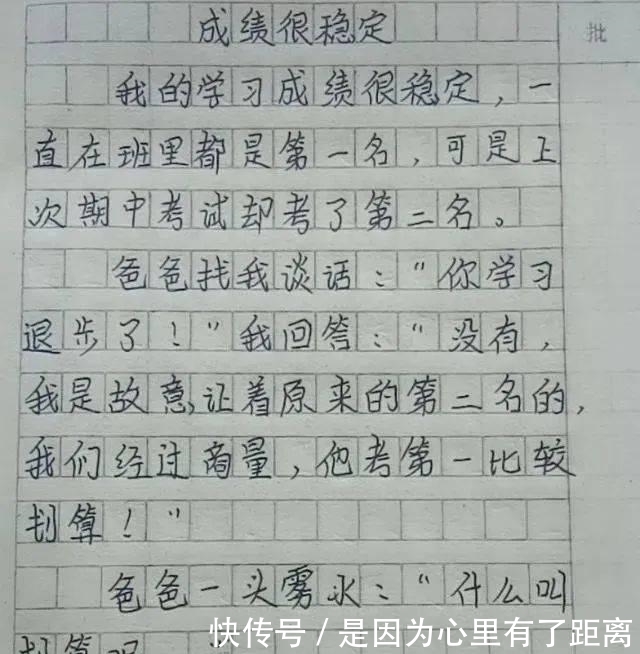 成绩很稳定
批
我的学习成绩很稳定，一
直在班里都是第一名，可是上
次期中考试却考了第二名。
爸爸找我谈话："你学习
退步了！"我回答："没有，
我是故意让着原来的第二名的，
我们经过商量，他考第一比较
划算！"
爸爸一头雾水："什么叫
划算呢
快传号 / 是因为心里有了距离